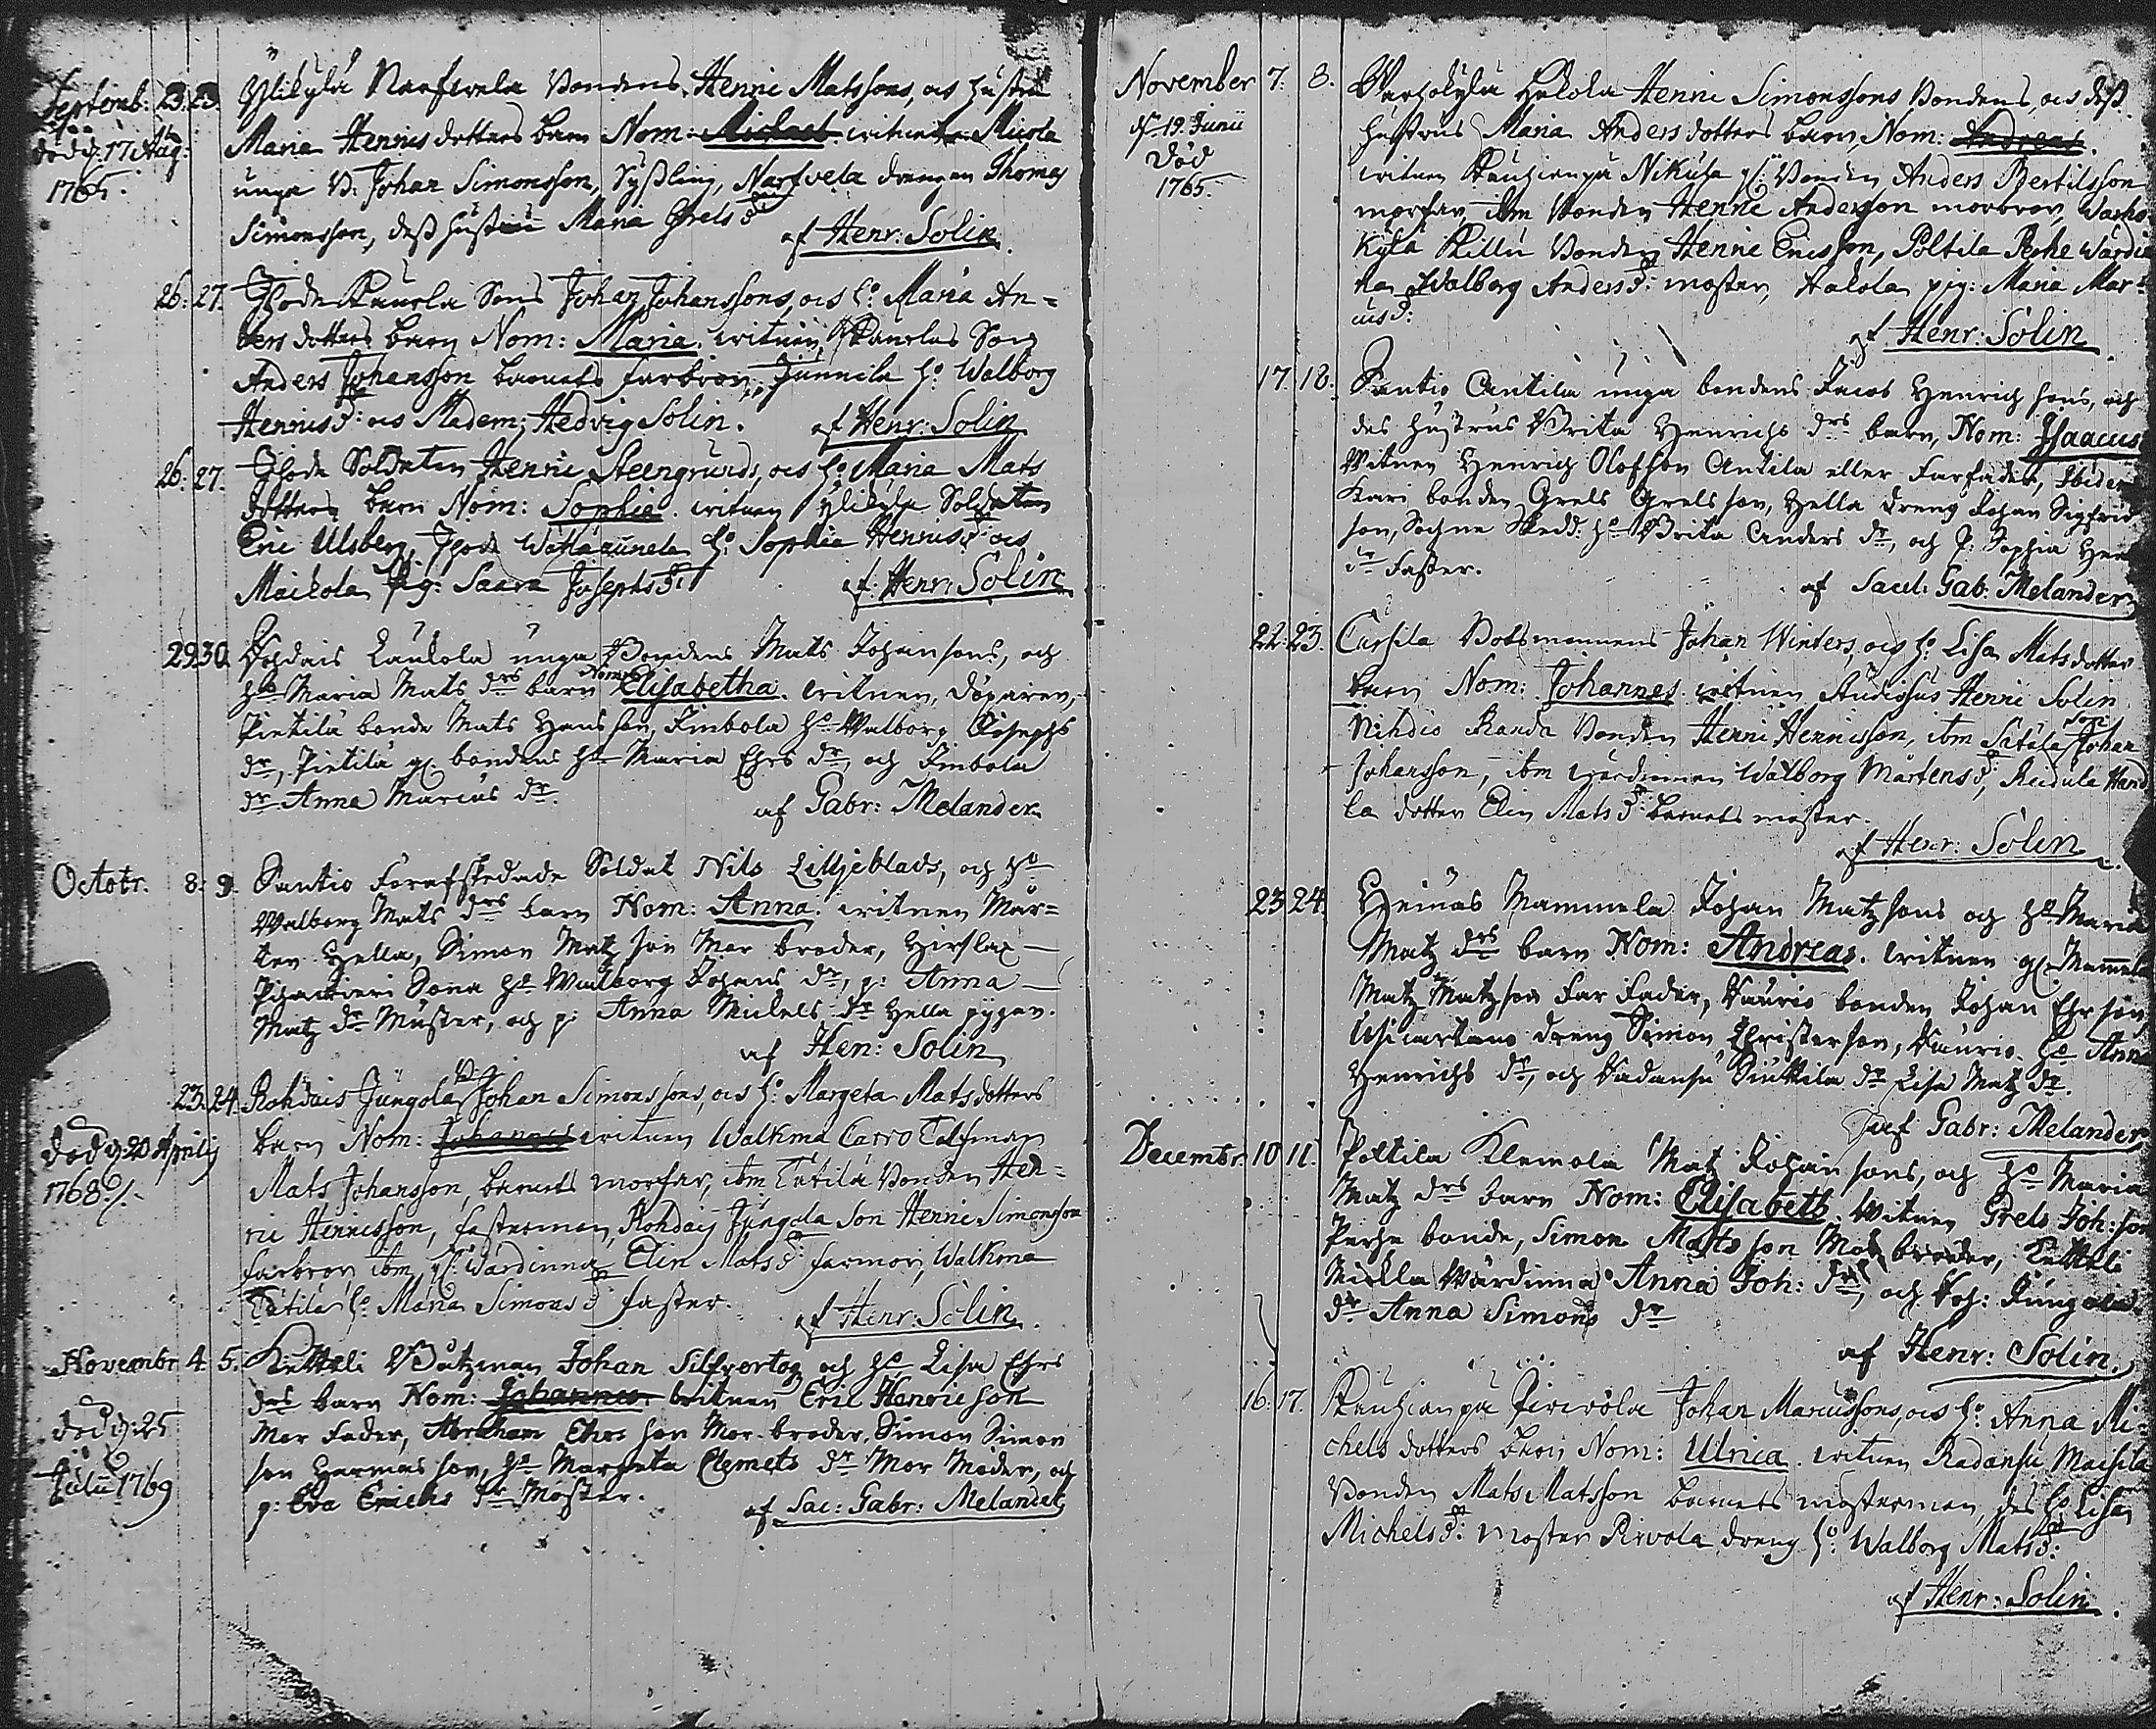 Septemb: 23. 23. Ylikylä Narfwela Bondens Henric Matssons, oc hustru
död d: 17 Aug: Maria Henrics dotters barn Nom: Michael witnen Micola
1765. unga B. Johan Simonsson, Syßling, Narfvela drengen Thomas
Simonsson, deß hustru Maria Grels dr
af Henr: Solin
26: 27. Isoda Sons Johan Johanssons, oc h: Maria An=
ders dotters barn Nom: Maria. witnen, Son
Anders Johansson barnets farbror, Junnila h: Walborg
Henrics dr: oc Madem: Hedvig Solin. af Henr: Solin
26: 27. Isoda Soldaten Henric Steengrunds, oc h: Maria Mats
dotters barn Nom: Sophia. witnen Ylikylä Soldaten
Eric Ulsberg, h: Sophia Henrics dr: oc
Maikola Pig: Saara Josephs dr af Henr: Solin
29 30. Laukola unga Bondens Mats Johansons, och
hо Maria Mats drs barn Nom: Elisabetha. witnen,
Pietilä bonde Mats Hansson, Simbola ho Walborg Josephs
dr, Pietilä gl. bondens ho Maria Ehrs dr, och Simbola
dr Anna Marcus dr.
af Gabr: Melander
Octobr. 8: 9. Santio Förafskedade Soldat Nils Lilljeblads, och ho
Walborg Mats drs barn Nom: Anna. witnen Mår=
ten Hella, Simon Matz son Mor broder, Hirslax
Sona ho Walborg Johans dr, p: Anna
Matz dr Muster, och p: Anna Mickels dr Hella pygan.
af Hen: Solin
23. 24. Rohdais Jungola B Johan Simonssons, oc h: Margeta Mats dotters
död d: 20 Aprilis barn Nom: Johannes witnen Walkma Carro
1768 Mats Johansson, barnets morfar, ibm Eetilä Bonden Hen=
ric Henricsson, fasterman, Rohdais Jungola Son Henric Simonsson
farbror ibm gl: Wärdinna Elin Mats dr farmor, Walkma
Eetilä h: Maria Simons dr faster. af Henr: Solin
Novembr 4. 5. Kitteli Båtzman Johan Silfvertog och ho Lisa Ehrs
drs barn Nom: Johannes witnen Eric Henric son
död d: 25 Mor Fader, Abraham Ehrs son Mor broder, Simon Simon
Julii 1769 son Harmas son, ho Margeta Clemets dr Mor Moder, och
p: Eva Erichs dr Moster. af Sac: Gabr: Melander
November 7. 8. Warhokylä Hakola Henric Simonssons Bondens, oc deß
d. 19. Junii hustrus Maria Anders dotters barn, Nom: Andreas.
Död witnen Nikula gl: Bonden Anders Bertilsson
1765. morfar, ibm Bonden Henric Andersson morbror, Warho
kylä Killu Bonden Henric Ericsson, Poltila Perhe Wärdin
na Walborg Anders dr: moster, Hakola pig: Maria Mar=
cus dr:
af Henr: Solin
17. 18. Santio Antila unga bondens Jacob Henrich sons, och
des hustrus Brita Henrichs drs barn, Nom: Isaacus
Witnen Henrich Olofsson Antila eller Farfader, Ibidem
Kari bonden Grels Grelsson, Hella dreng Johan Sigfrid
son, Sockne Skredd: ho Brita Anders dr, och p: Sophia Hen
dr Faster.
af Sacel: Gab: Melander
22. 23. Cursila Båtsmannens Johan Winters, oc h: Lisa Mats dotter
barn Nom: Johannes. witnen Studiosus Henric Solin
Nihdio Randa Bonden Henric Henricsson, ibm Sätälä Son Johan
Johansson, ibm wärdinnan Walborg Mårtens dr, Reidula Hand
la dotter Elin Mats dr: barnets moster.
af Henr: Solin
23 24. Heinäs Mammela Johan Matz sons och ho Maria
Matz drs barn Nom: Andreas. witnen gl. Mammela
Matz Matzson Far Fader, Kaurio bonden Johan Ehrson,
dreng Simon Christerson, Kaurio ho Anna
Henrichs dr, och dr Lisa Matz dr.
af Gabr: Melander
Decembr. 10 11. Poltila Klemola Matz Johan sons, och ho Maria
Matz drs barn Nom: Elisabeth. Witnen Grels Joh: son
Perhe bonde, Simon Matts son Mor broder, Kitteli
Mickla Wärdinna Anna Joh: dr, och Roh: Jungola
dr Anna Simons dr
af Henr: Solin.
16. 17. Johan Marcussons, oc h: Anna Mi
chels dotters barn Nom: Ulrica. witnen Radansu
Bonden Mats Matsson barnets mosterman, des h: Lisa
Michels dr: moster Pirvola dreng h: Walborg Mats dr:
af Henr: Solin.